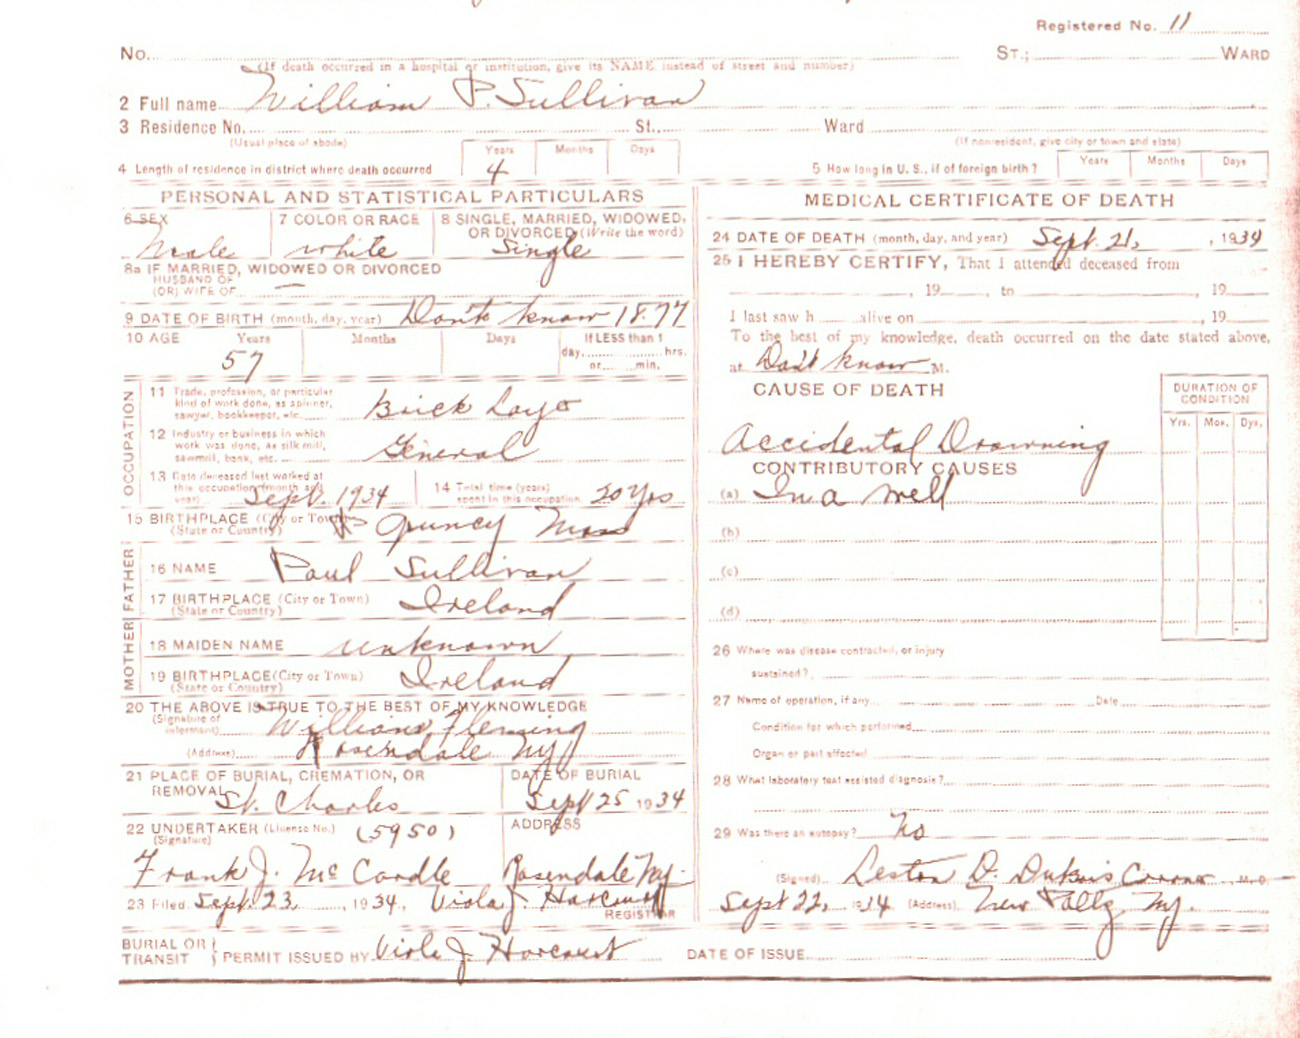 Registered No. 11
No. St.; WARD
(If death occurred in a hospital or institution, give its NAME instead of street and number)
2 Full name William P. Sullivan
3 Residence No. St., Ward
(Usual place of abode) (If nonresident, give city or town and state)
4 Length of residence in district where death occurred Years 4 Months Days 5 How long in U. S., if of foreign birth? Years Months Days
PERSONAL AND STATISTICAL PARTICULARS
6 SEX 7 COLOR OR RACE 8 SINGLE, MARRIED, WIDOWED,
OR DIVORCED (Write the word)
Male white Single
8a IF MARRIED, WIDOWED OR DIVORCED
HUSBAND OF
(OR) WIFE OF —
9 DATE OF BIRTH (month, day, year) Don't know 1877
10 AGE Years Months Days If LESS than 1
57 day, hrs.
or min.
OCCUPATION
11 Trade, profession, or particular
kind of work done, as spinner,
sawyer, bookkeeper, etc. Brick Layer
12 Industry or business in which
work was done, as silk mill,
sawmill, bank, etc. General
13 Date deceased last worked at
this occupation (month and
year) Sept. 1934 14 Total time (years)
spent in this occupation 20 Yrs
15 BIRTHPLACE (City or Town)
(State or Country) Quincy Mass
FATHER
16 NAME Paul Sullivan
17 BIRTHPLACE (City or Town)
(State or Country) Ireland
MOTHER
18 MAIDEN NAME unknown
19 BIRTHPLACE (City or Town)
(State or Country) Ireland
20 THE ABOVE IS TRUE TO THE BEST OF MY KNOWLEDGE
(Signature of
informant) William Fleming
(Address) Rosendale Ny
21 PLACE OF BURIAL, CREMATION, OR
REMOVAL St. Charles
DATE OF BURIAL
Sept 25 1934
22 UNDERTAKER (License No.) (5950)
(Signature)
ADDRESS
Frank J. McCardle Rosendale Ny.
23 Filed Sept 23, 1934. Viola J. Harcourt
REGISTRAR
BURIAL OR
TRANSIT } PERMIT ISSUED BY Viola J. Harcourt DATE OF ISSUE
MEDICAL CERTIFICATE OF DEATH
24 DATE OF DEATH (month, day, and year) Sept. 21, , 1934
25 I HEREBY CERTIFY, That I attended deceased from
, 19 , to , 19
I last saw h alive on , 19
To the best of my knowledge, death occurred on the date stated above,
at Don't know M.
CAUSE OF DEATH
DURATION OF
CONDITION
Yrs. Mos. Dys.
Accidental Drowning
CONTRIBUTORY CAUSES
(a) In a well
(b)
(c)
(d)
26 Where was disease contracted, or injury
sustained?
27 Name of operation, if any Date
Condition for which performed
Organ or part affected
28 What laboratory test assisted diagnosis?
29 Was there an autopsy? No
(Signed) Leston D. DuBois Coroner M. D.
Sept 22, 1934 (Address) New Paltz Ny.